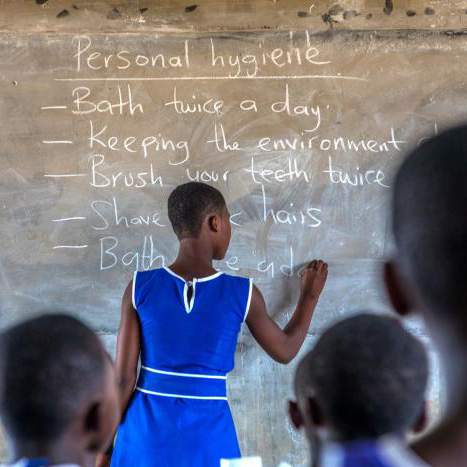 Personal hygiene
— Bath twice a day.
— Keeping the environment
— Brush your teeth twice
— Shave hairs
— Bath a da